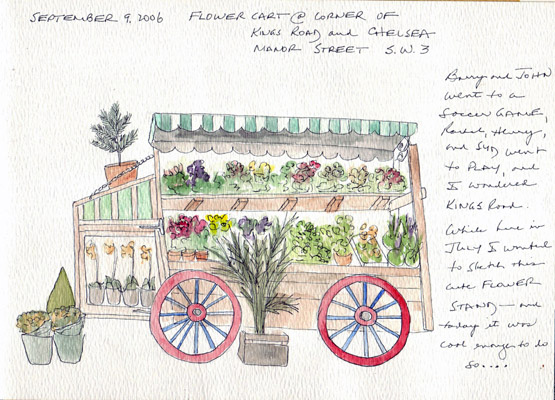 SEPTEMBER 9, 2006 FLOWER CART @ CORNER OF
KINGS ROAD and CHELSEA
MANOR STREET S.W.3
Barry and JOHN
went to a
SOCCER GAME,
Rachel, Henry,
and SYD went
to PLAY, and
I wandered
KINGS ROAD.
While here in
July I wanted
to sketch this
cute FLOWER
STAND — and
today it was
cool enough to do
so....